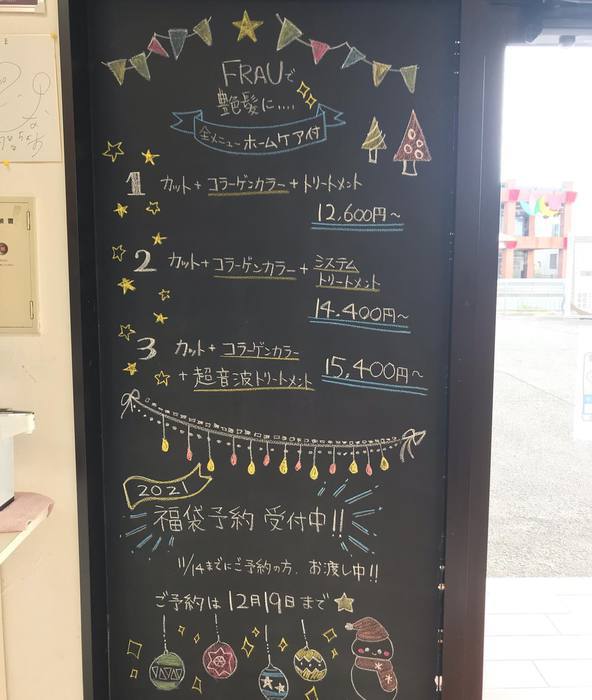 FRAUで
艶髪に....
全メニューホームケア付
1 カット+コラーゲンカラー+トリートメント
12,600円～
2 カット+コラーゲンカラー+システム
トリートメント
14,400円～
3 カット+コラーゲンカラー
+超音波トリートメント 15,400円～
2021
福袋予約 受付中!!
11/14までにご予約の方、お渡し中!!
ご予約は12月19日まで